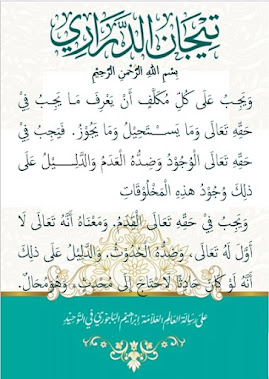 تِيْجَانُ الدَّرَارِي
بِسْمِ اللهِ الرَّحْمٰنِ الرَّحِيْمِ
وَيَجِبُ عَلَى كُلِّ مُكَلَّفٍ أَنْ يَعْرِفَ مَا يَجِبُ فِيْ
حَقِّهِ تَعَالَى وَمَا يَسْتَحِيْلُ وَمَا يَجُوْزُ. فَيَجِبُ فِيْ
حَقِّهِ تَعَالَى الْوُجُوْدُ وَضِدُّهُ الْعَدَمُ وَالدَّلِيْلُ عَلَى
ذٰلِكَ وُجُوْدُ هٰذِهِ الْمَخْلُوْقَاتِ
وَيَجِبُ فِيْ حَقِّهِ تَعَالَى الْقِدَمُ. وَمَعْنَاهُ أَنَّهُ تَعَالَى لَا
أَوَّلَ لَهُ تَعَالَى، وَضِدُّهُ الْحُدُوْثُ. وَالدَّلِيْلُ عَلَى ذٰلِكَ
أَنَّهُ لَوْ كَانَ حَادِثًا لَاحْتَاجَ إِلَى مُحْدِثٍ، وَهُوَ مُحَالٌ.
عَلَى رِسَالَةِ الْعَالِمِ الْعَلَّامَةِ إِبْرَاهِيْمَ الْبَاجُوْرِي فِي التَّوْحِيْدِ